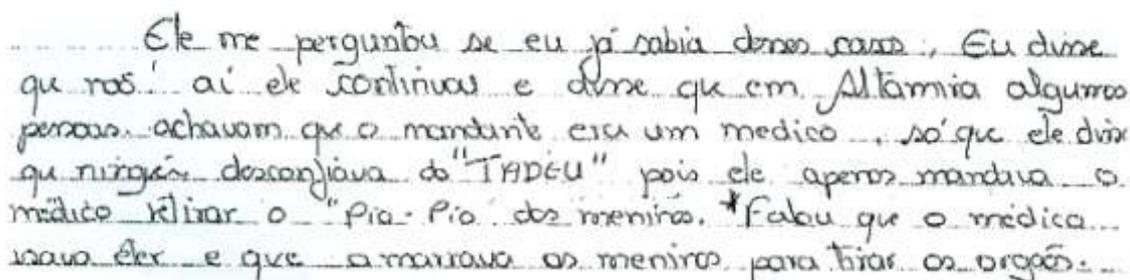 Ele me perguntou se eu já sabia desses casos, Eu disse
que não! aí ele continuou e disse que em Altamira algumas
pessoas achavam que o mandante era um medico, só que ele disse
que ninguém desconfiava do "TADEU" pois ele apenas mandava o
médico retirar o "Pia-Pia dos meninos. *Falou que o médica
usava éter e que amarrava os meninos para tirar os orgãos.